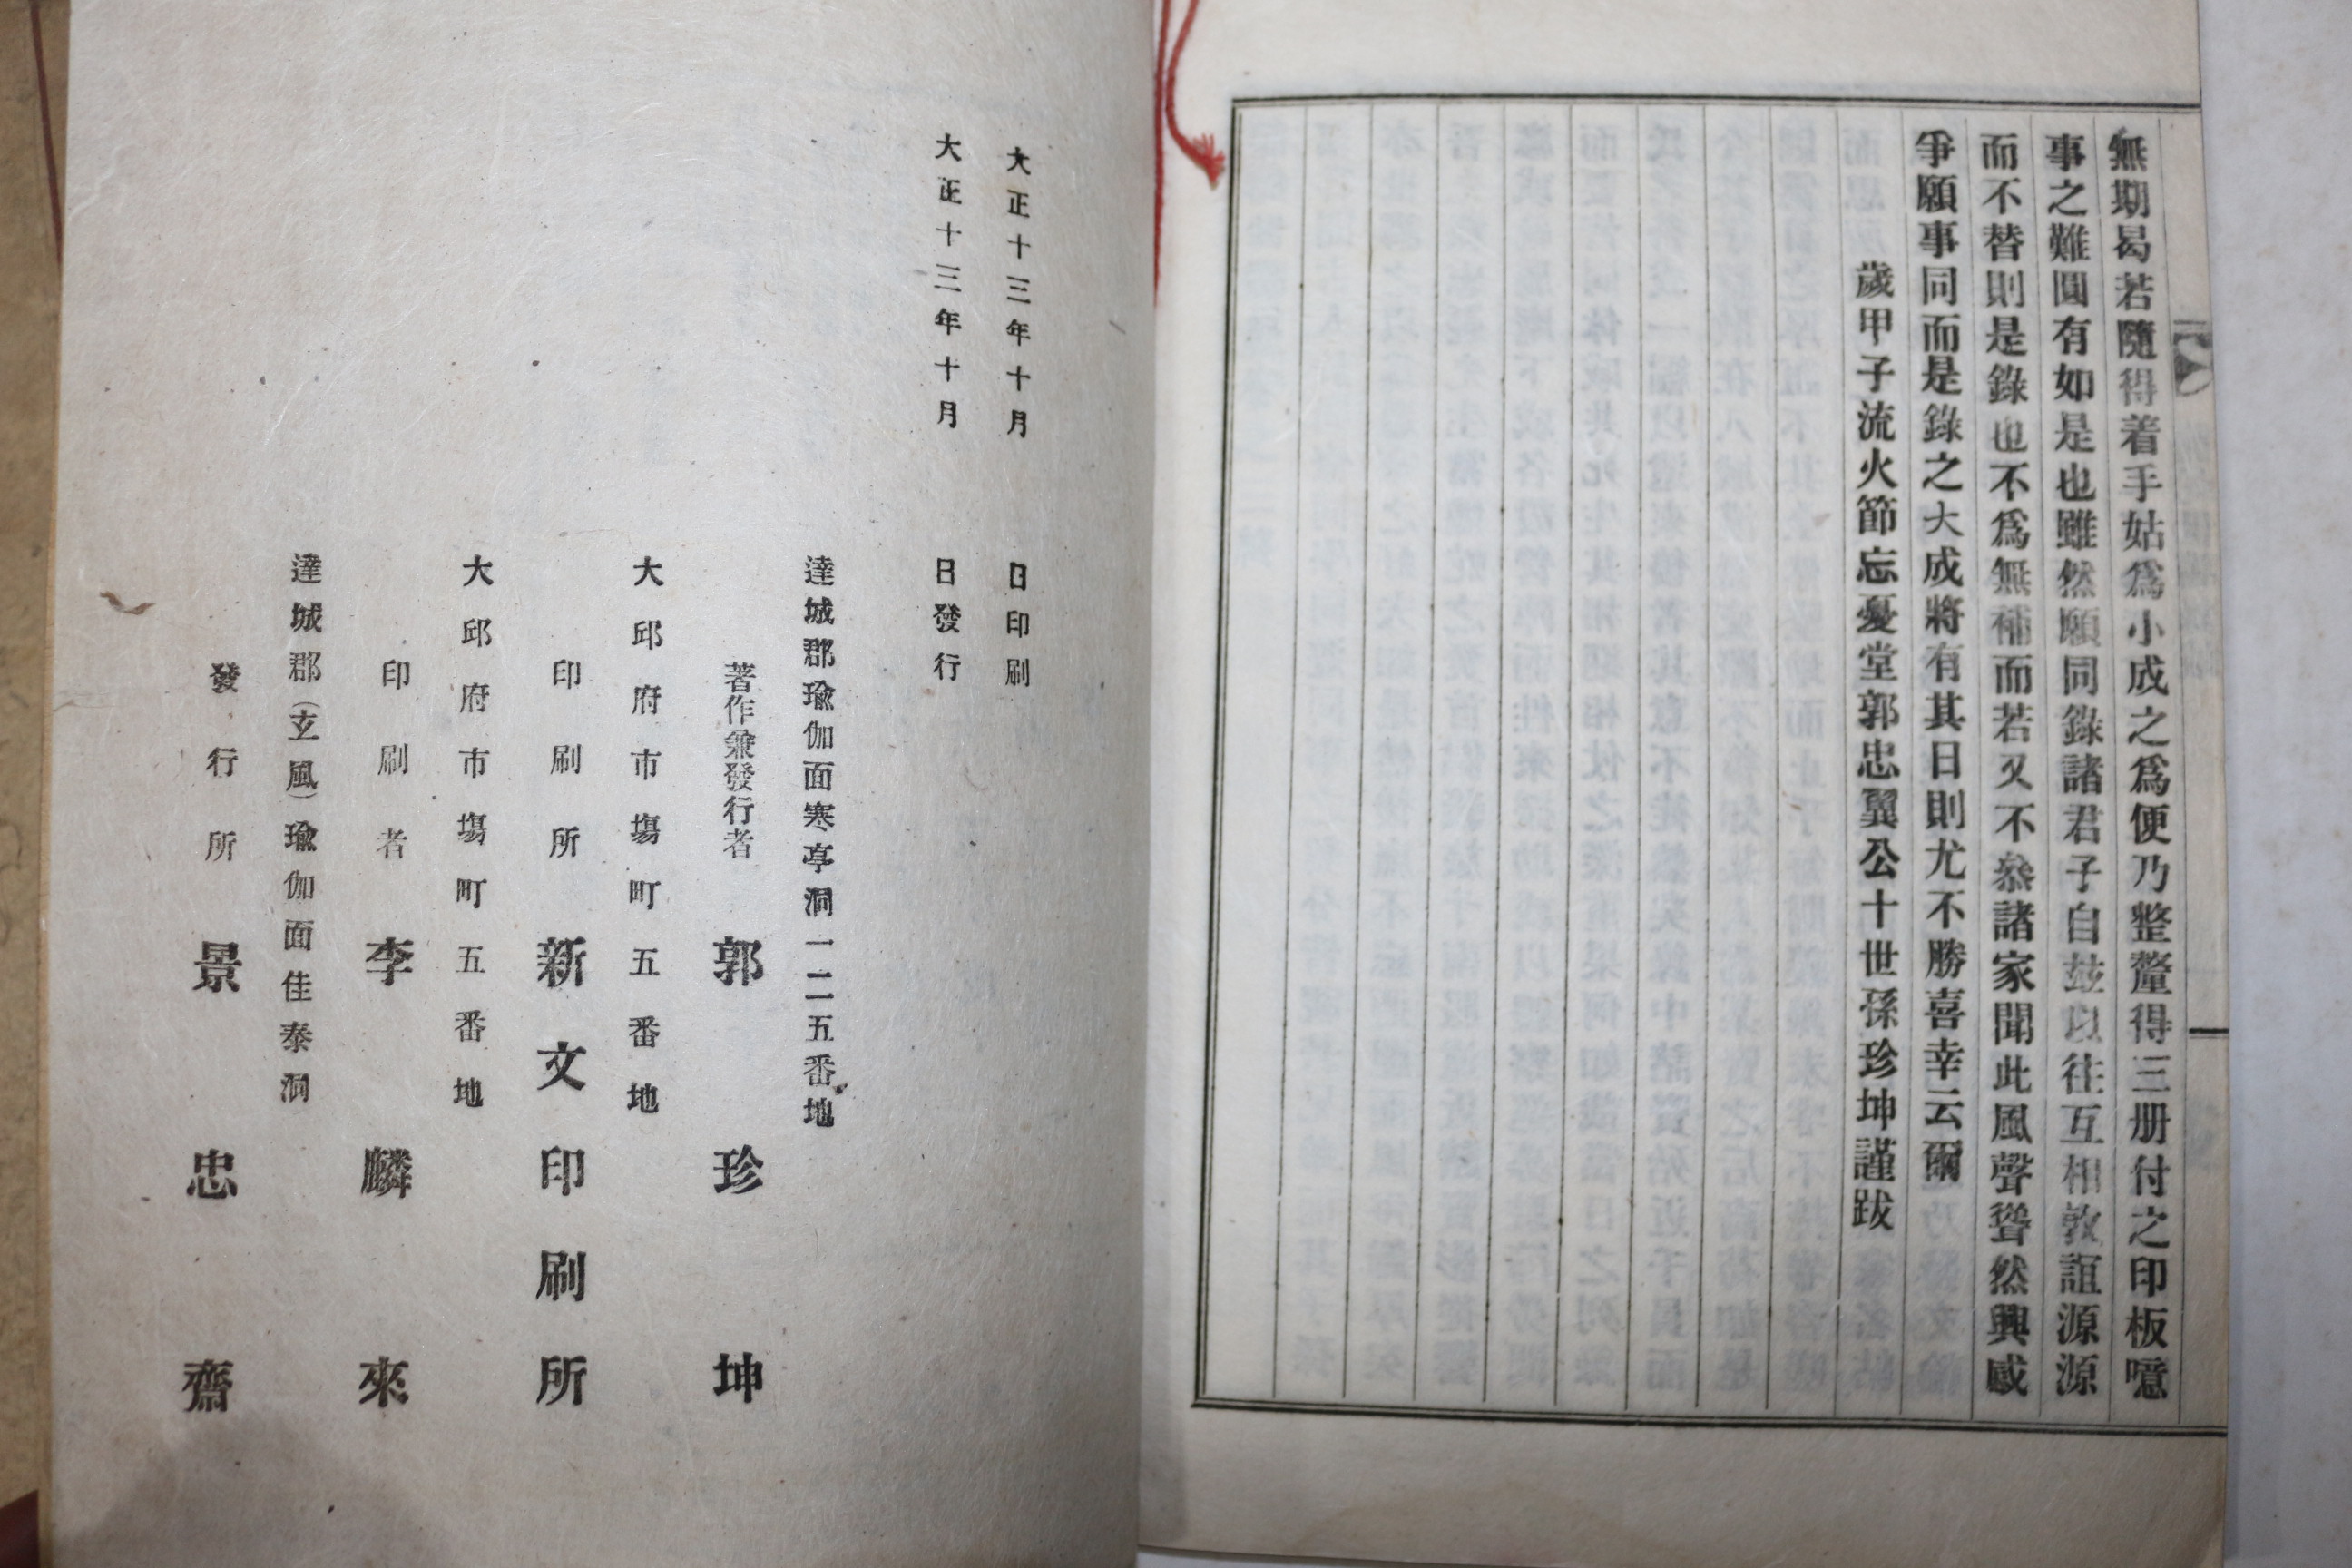 無期曷若隨得着手姑爲小成之爲便乃整釐得三册付之印板噫
事之難圓有如是也雖然願同錄諸君子自玆以往互相敦誼源源
而不替則是錄也不爲無補而若又不叅諸家聞此風聲聳然興感
爭願事同而是錄之大成將有其日則尤不勝喜幸云爾
歲甲子流火節忘憂堂郭忠翼公十世孫珍坤謹跋
大正十三年十月 日印刷
大正十三年十月 日發行
達城郡瑜伽面寒亭洞一二五番地
著作兼發行者 郭珍坤
大邱府市塲町五番地
印刷所 新文印刷所
大邱府市塲町五番地
印刷者 李麟來
達城郡(玄風)瑜伽面佳泰洞
發行所 景忠齋